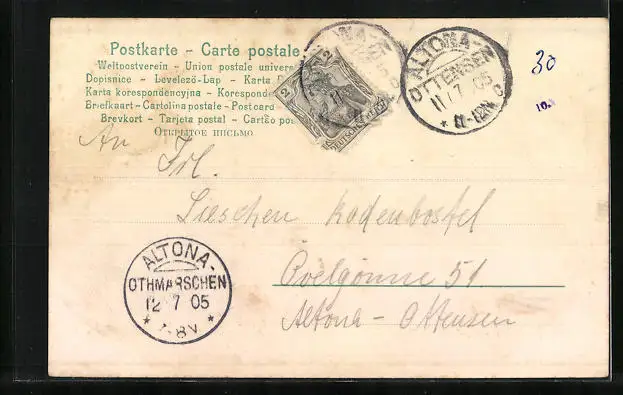 Postkarte - Carte postale
Weltpostverein - Union postale univers
Dopisnice - Levelező-Lap - Karta
Karta korespondencyjna - Korespond
Briefkaart - Cartolina postale - Postcard
Brevkort - Tarjeta postal - Cartão pos
Открытое письмо
2 2
DEUTSCHES REICH
ALTONA-
OTTENSEN
11 7 05
* 11-12N C
30
10.
An Frl.
Lieschen Rodenbostel
Övelgönne 51
Altona-Ottensen
ALTONA-
OTHMARSCHEN
12 7 05
* 7-8V *